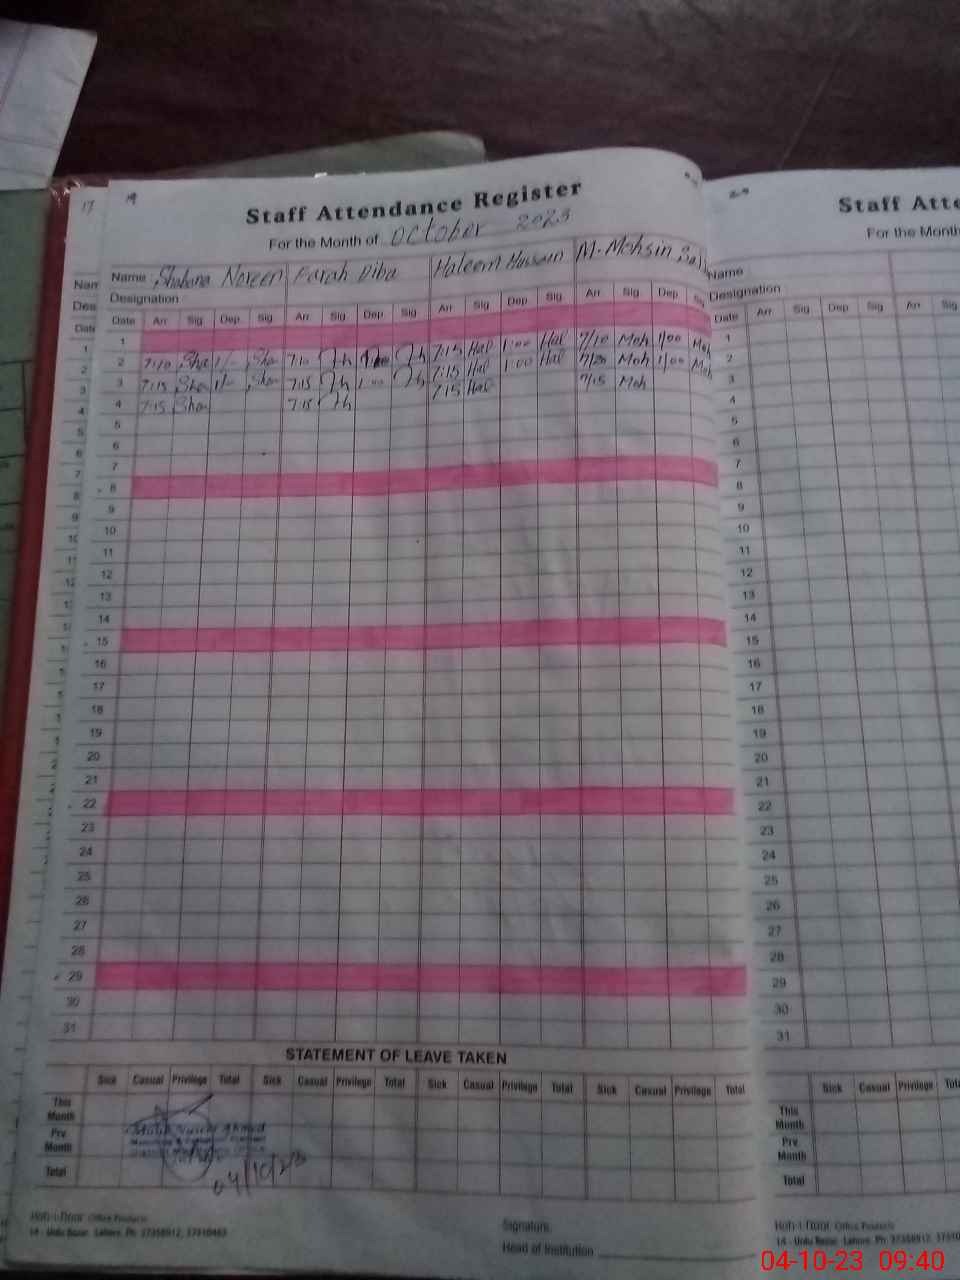 17 19
Staff Attendance Register
For the Month of October 2023
Name Shabana Noreen Farah Diba Haleem Hussain M. Mohsin
Designation
Date Arr Sig Dep Sig Arr Sig Dep Sig Arr Sig Dep Sig Arr Sig Dep Sig
1
2 7:10 Sha 1/- Sha 7:10 1:00 7:15 Hal 1:00 Hal 7/10 Moh 1/00 Moh
3 7:15 Sha 1/- Sha 7:15 1:00 7:15 Hal 1:00 Hal Moh 1/00 Moh
4 7:15 Sha 7:15 7:15 Hal 7/15 Moh
5
6
7
8
9
10
11
12
13
14
15
16
17
18
19
20
21
22
23
24
25
26
27
28
29
30
31
STATEMENT OF LEAVE TAKEN
Sick Casual Privilege Total Sick Casual Privilege Total Sick Casual Privilege Total Sick Casual Privilege Total
This Month
Pre Month
Total
04/10/23
Office Products
14 - Urdu Bazar Lahore. Ph: 37358912, 37310463
Signature
Head of Institution
Staff Atte
For the Month
Name
Designation
Date Arr Sig Dep Sig Arr Sig
1
2
3
4
5
6
7
8
9
10
11
12
13
14
15
16
17
18
19
20
21
22
23
24
25
26
27
28
29
30
31
Sick Casual Privilege Tot
This Month
Pre Month
Total
Office Products
14 - Urdu Bazar Lahore. Ph: 37358912, 3731
04-10-23 09:40